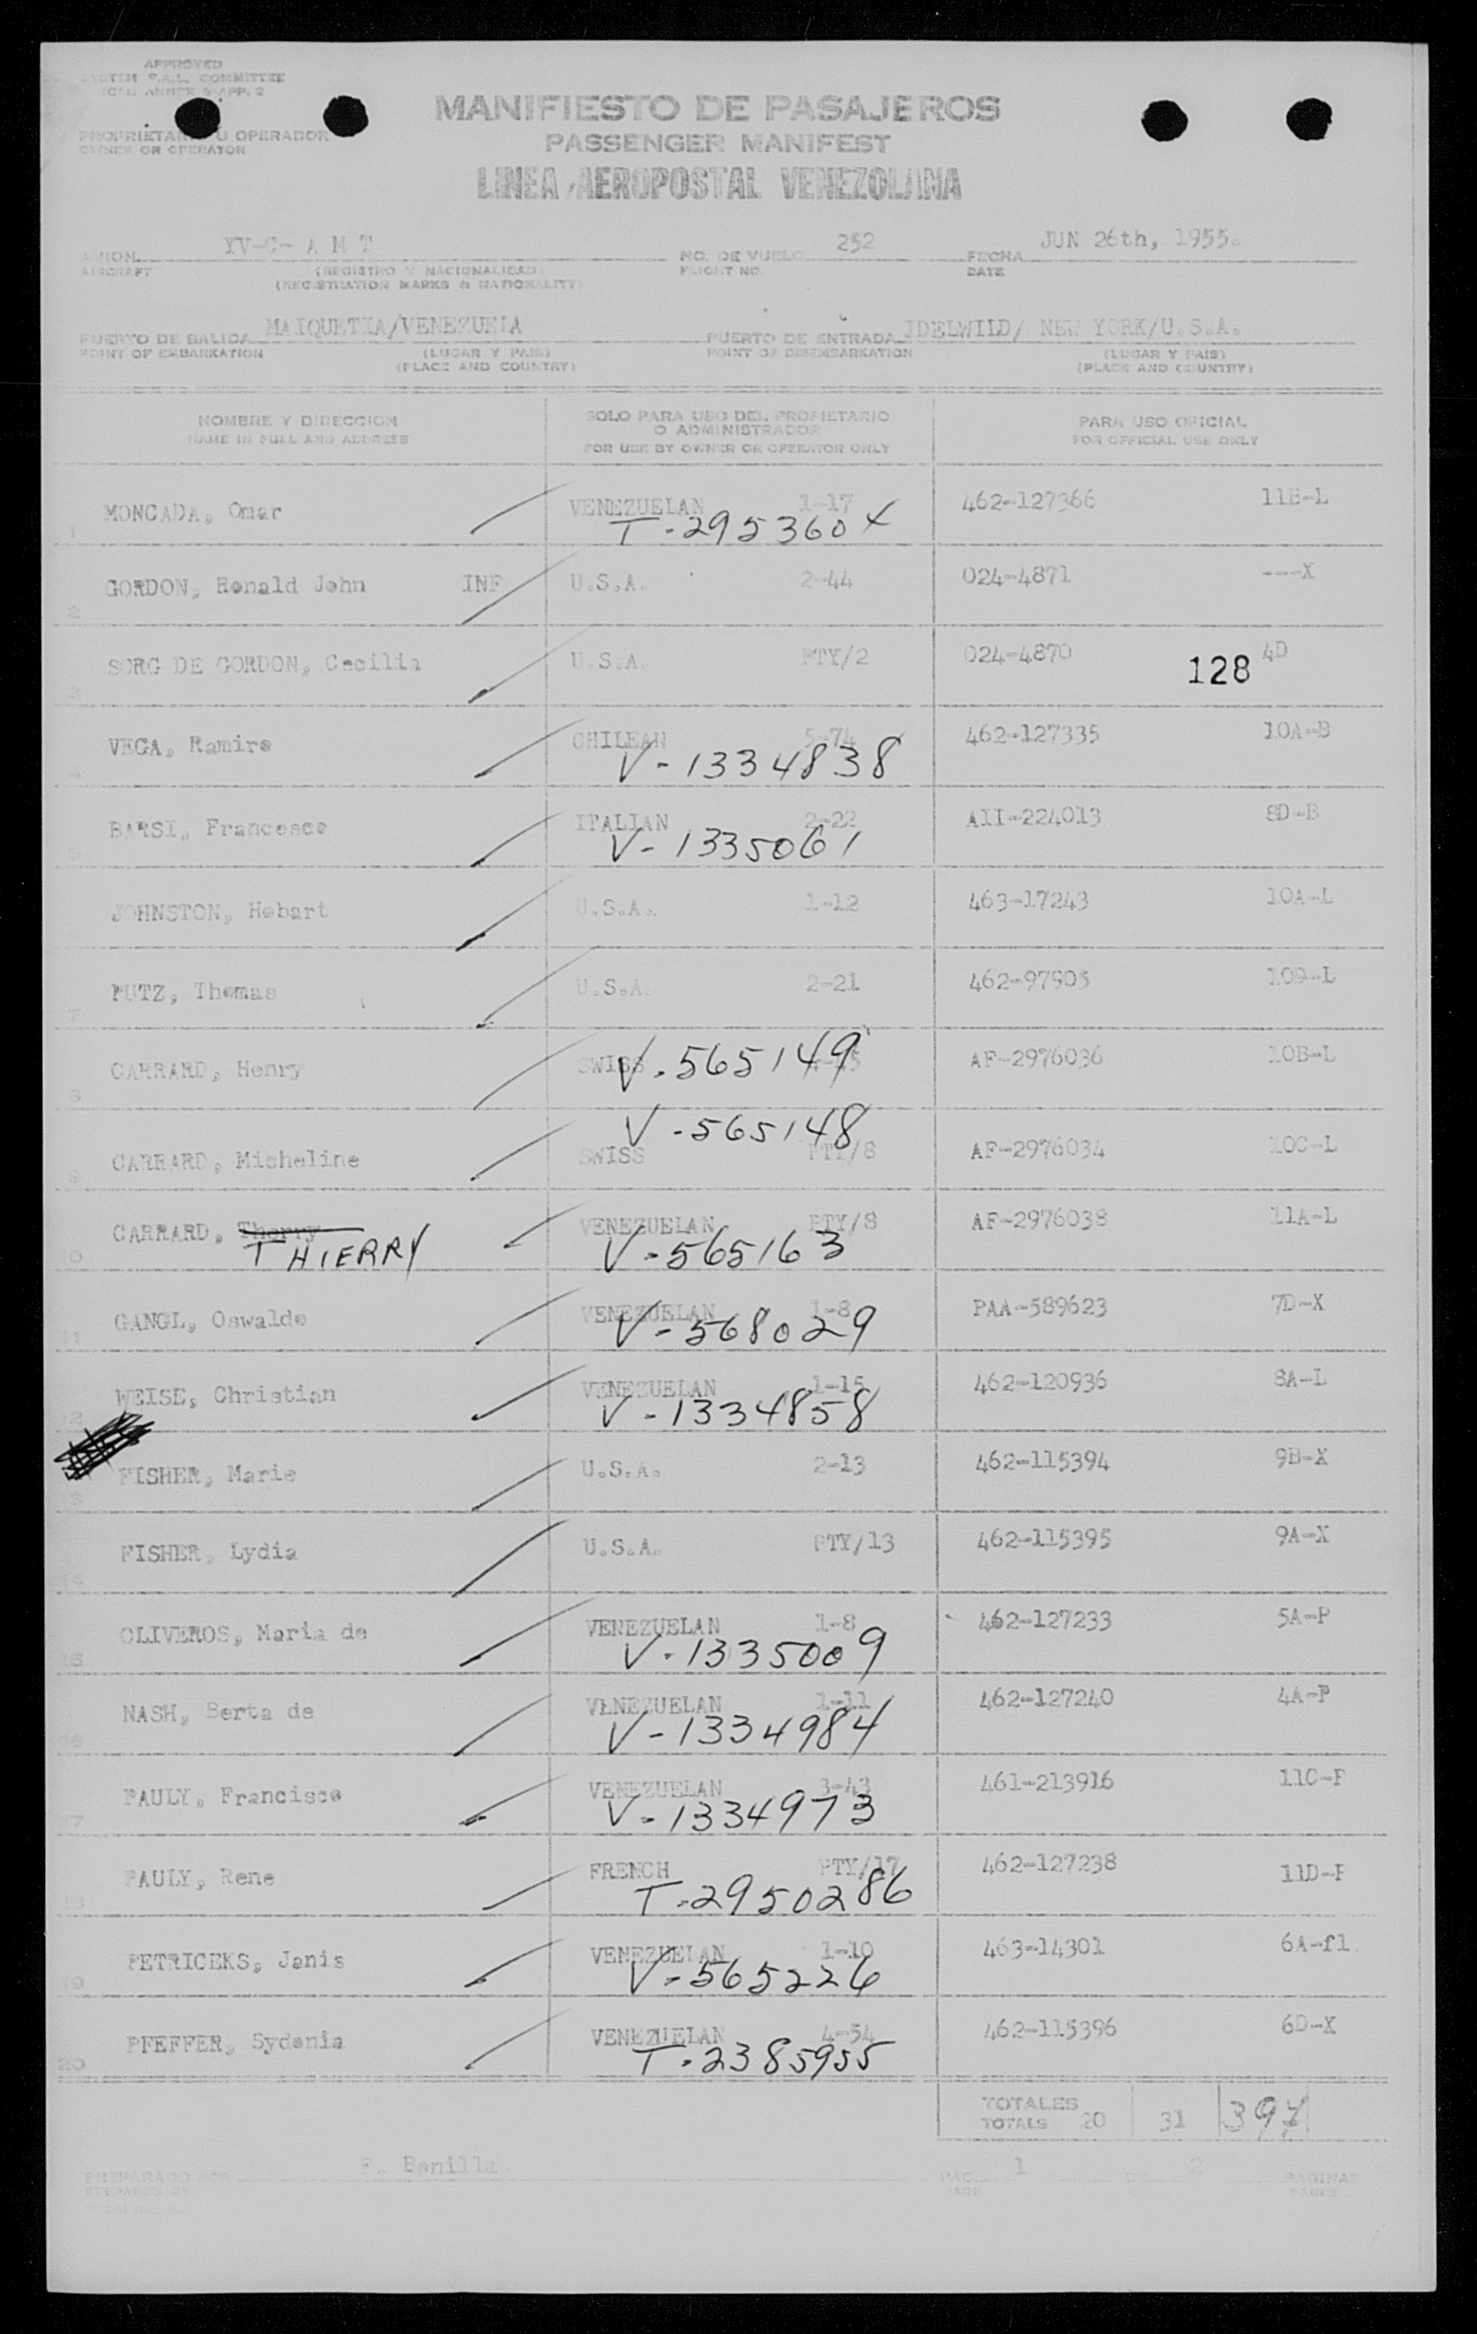 APPROVED
SYSTEM F.A.L. COMMITTEE
ICAO ANNEX 9-APP. 2
PROPRIETARIO U OPERADOR
OWNER OR OPERATOR
MANIFIESTO DE PASAJEROS
PASSENGER MANIFEST
LINEA AEROPOSTAL VENEZOLANA
AVION XV-C- A M T NO. DE VUELO 252 FECHA JUN 26th, 1955.
AIRCRAFT (REGISTRO Y NACIONALIDAD) FLIGHT NO. DATE
(REGISTRATION MARKS & NATIONALITY)
PUERTO DE SALIDA MAIQUETIA/VENEZUELA PUERTO DE ENTRADA IDELWILD/ NEW YORK/U.S.A.
POINT OF EMBARKATION (LUGAR Y PAIS) POINT OF DISEMBARKATION (LUGAR Y PAIS)
(PLACE AND COUNTRY) (PLACE AND COUNTRY)
NOMBRE Y DIRECCION SOLO PARA USO DEL PROPIETARIO PARA USO OFICIAL
O ADMINISTRADOR
NAME IN FULL AND ADDRESS FOR USE BY OWNER OR OPERATOR ONLY FOR OFFICIAL USE ONLY
1 MONCADA, Omar VENEZUELAN 1-17 462-127366 11B-L
T-2953604
2 GORDON, Ronald John INF U.S.A. 2-44 024-4871 ---X
3 SORG DE GORDON, Cecilia U.S.A. PTY/2 024-4870 128 4D
4 VEGA, Ramiro CHILEAN 5-74 462-127335 10A-B
V-1334838
5 BARSI, Francesco ITALIAN 2-22 AII-224013 8D-B
V-1335061
JOHNSTON, Hobart U.S.A. 1-12 463-17243 10A-L
7 MUTZ, Thomas U.S.A. 2-21 462-97905 10D-L
8 CARRARD, Henry SWISS AF-2976036 10B-L
V-565149
V-565148
9 CARRARD, Micheline SWISS PTY/8 AF-2976034 10C-L
10 CARRARD, Therry VENEZUELAN PTY/8 AF-2976038 11A-L
THIERRY V-565163
11 GANGL, Oswaldo VENEZUELAN 1-8 PAA-589623 7D-X
V-568029
12 WEISE, Christian VENEZUELAN 1-15 462-120936 8A-L
V-1334858
13 FISHER, Marie U.S.A. 2-13 462-115394 9B-X
14 FISHER, Lydia U.S.A. PTY/13 462-115395 9A-X
15 OLIVEROS, Maria de VENEZUELAN 1-8 462-127233 5A-P
V-1335009
16 NASH, Berta de VENEZUELAN 1-11 462-127240 4A-P
V-1334984
17 PAULY, Francisco VENEZUELAN 3-43 461-213916 11C-P
V-1334973
18 PAULY, Rene FRENCH PTY/17 462-127238 11D-P
T-2950286
19 PETRICEKS, Janis VENEZUELAN 1-10 463-14301 6A-f1
V-565226
20 PFEFFER, Sydonia VENEZUELAN 4-54 462-115396 6D-X
T-2385955
TOTALES
TOTALS 20 31 397
PREPARADO POR F. Bonilla PAG. 1 DE 2 PAGINAS
PREPARED BY PAGE PAGES